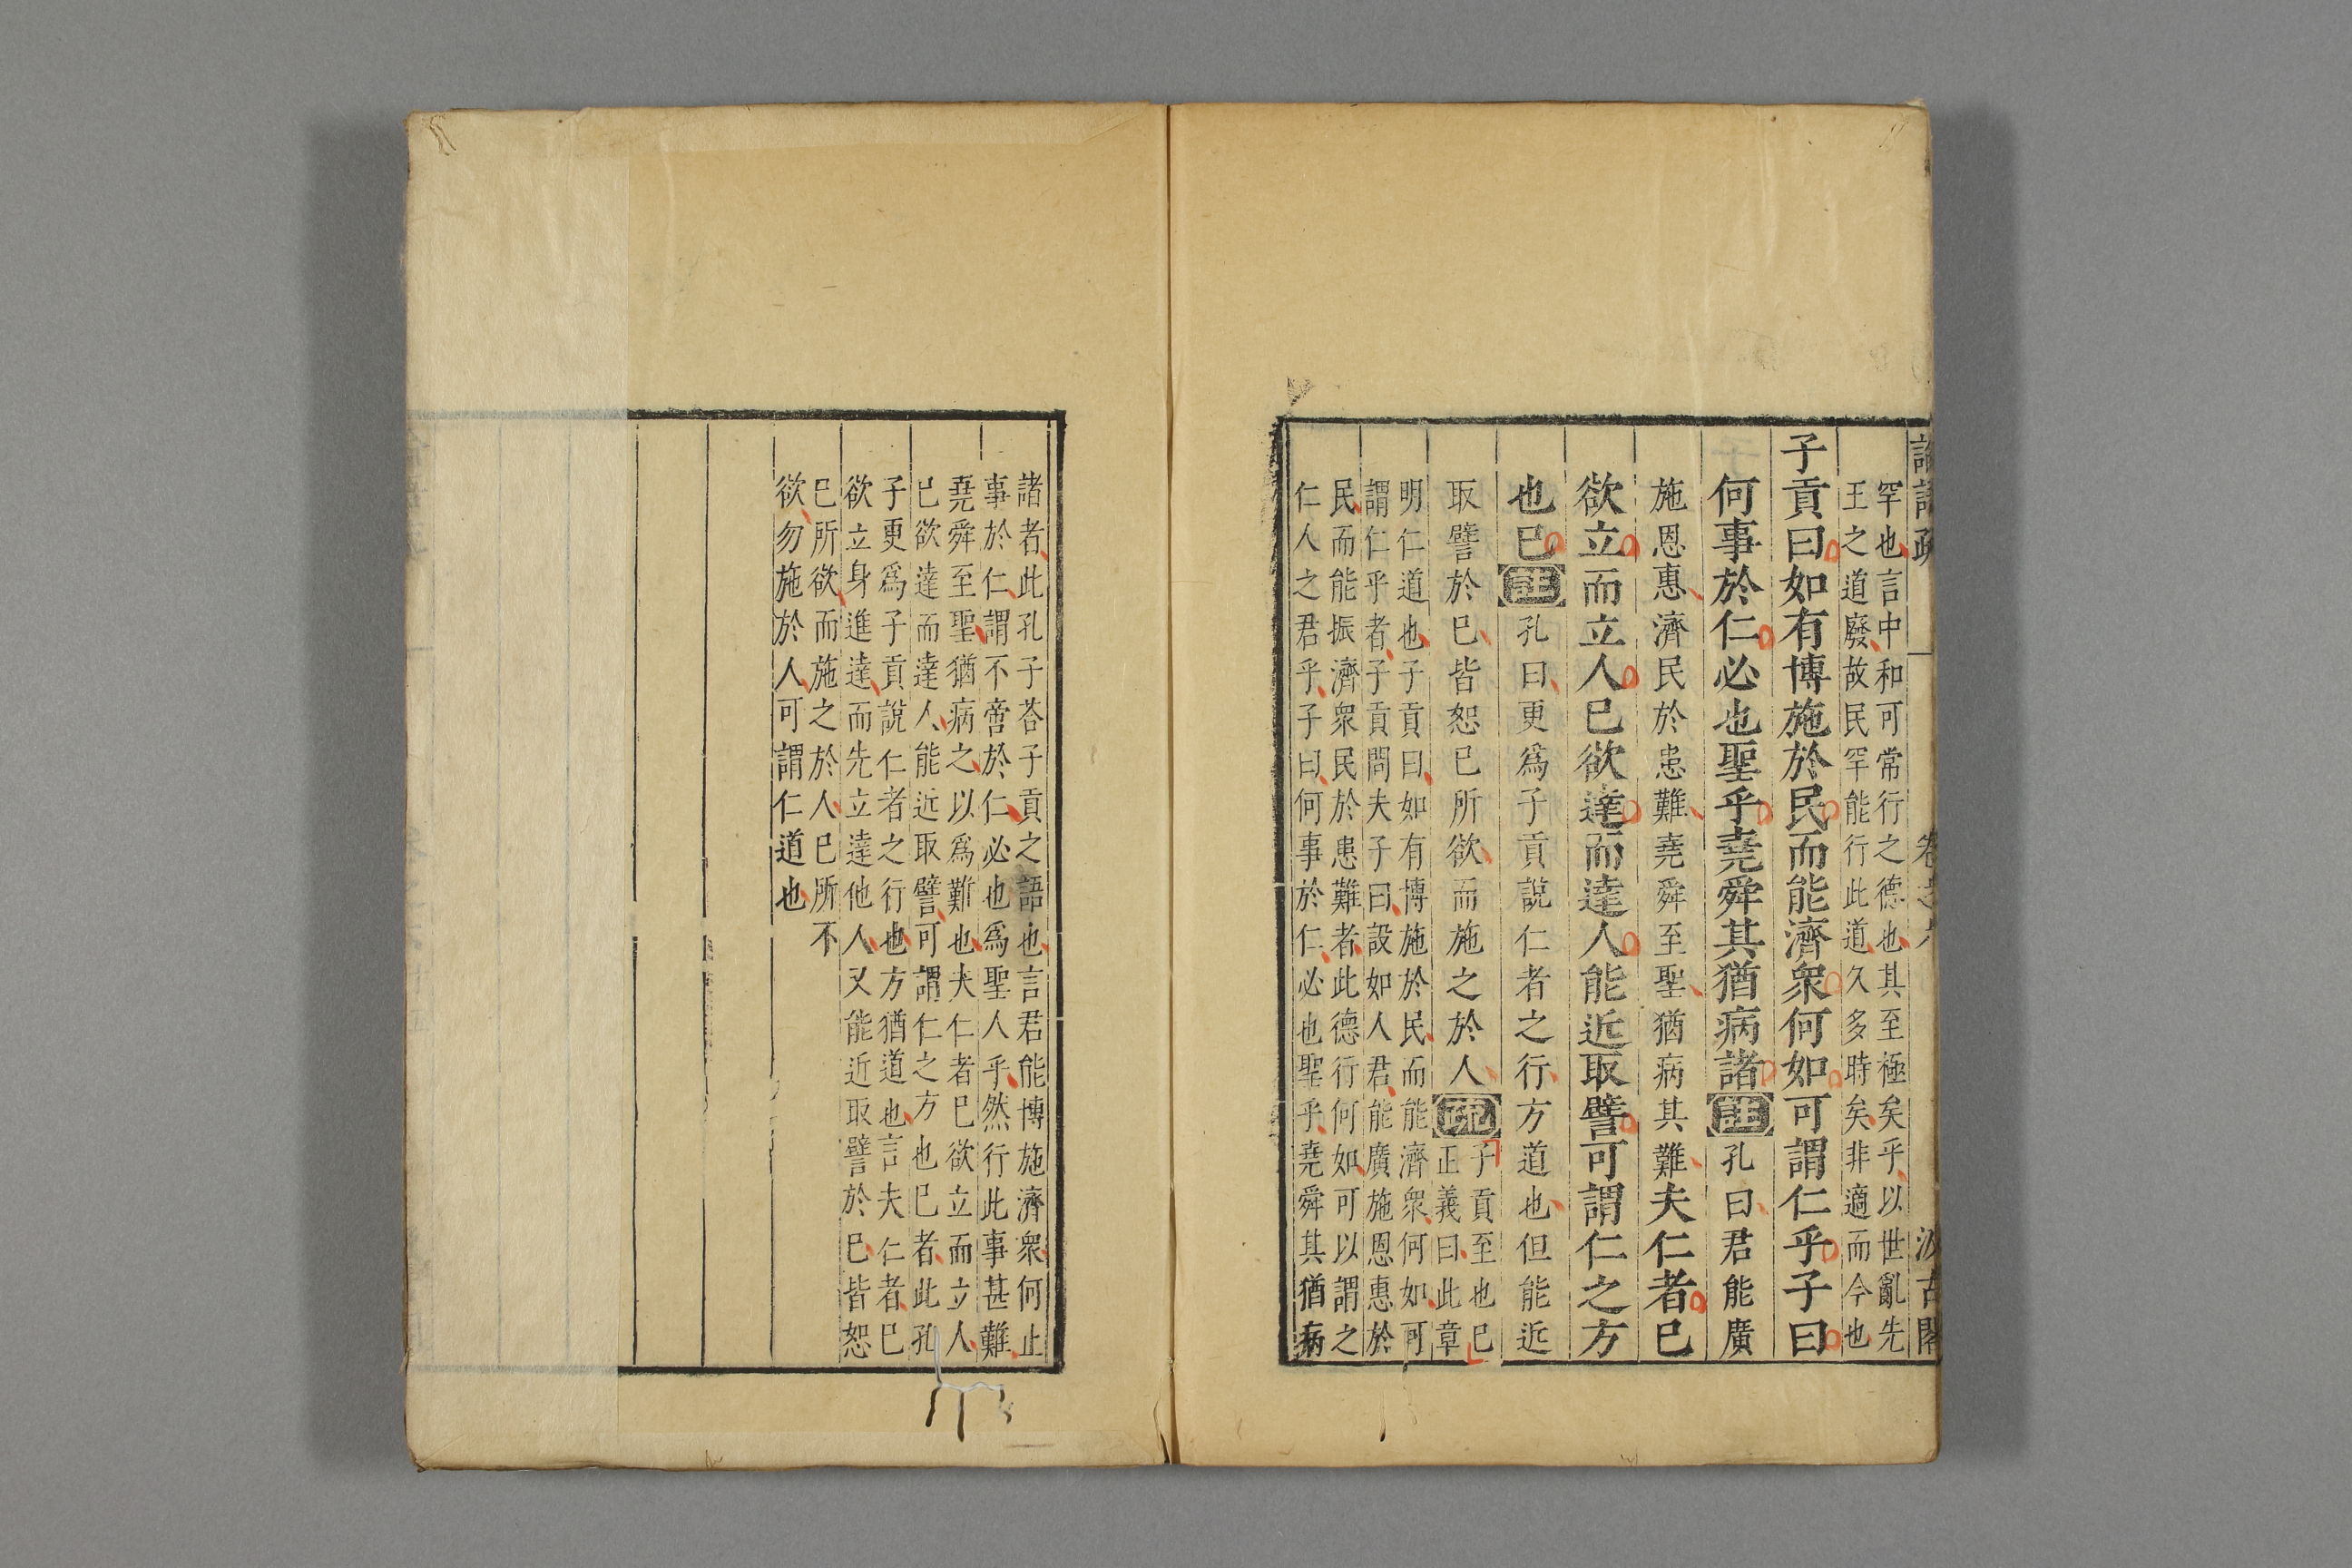 罕也言中和可常行之德也其至極矣乎以世亂先
王之道廢故民罕能行此道久多時矣非適而今也
子貢曰如有博施於民而能濟衆何如可謂仁乎子曰
何事於仁必也聖乎堯舜其猶病諸註孔曰君能廣
施恩惠濟民於患難堯舜至聖猶病其難夫仁者已
欲立而立人已欲達而達人能近取譬可謂仁之方
也已註孔曰更爲子貢說仁者之行方道也但能近
取譬於已皆恕已所欲而施之於人疏
子貢至也已
正義曰此章
明仁道也子貢曰如有博施於民而能濟衆何如可
謂仁乎者子貢問夫子曰設如人君能廣施恩惠於
民而能振濟衆民於患難者此德行何如可以謂之
仁人之君乎子曰何事於仁必也聖乎堯舜其猶病
諸者此孔子荅子貢之語也言君能博施濟衆何止
事於仁謂不啻於仁必也爲聖人乎然行此事甚難
堯舜至聖猶病之以爲難也夫仁者已欲立而立人
已欲達而達人能近取譬可謂仁之方也已者此孔
子更爲子貢說仁者之行也方猶道也言夫仁者已
欲立身進達而先立達他人又能近取譬於已皆恕
已所欲而施之於人已所不
欲勿施於人可謂仁道也